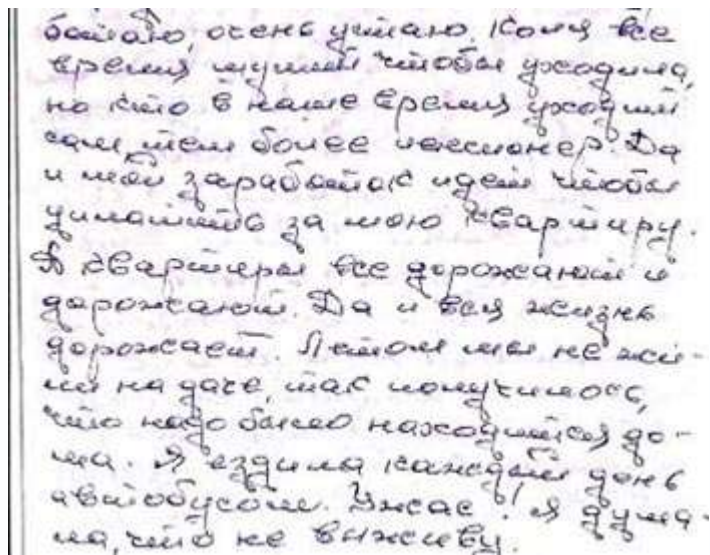 ботаю, очень устаю. Коля все
время шумит чтобы уходила,
но кто в наше время уходит
сам, тем более пенсионер. Да
и мой заработок идет чтобы
уплатить за мою квартиру.
А квартиры все дорожают и
дорожают. Да и вся жизнь
дорожает. Летом мы не жи-
ли на даче, так получилось,
что надо было находится до-
ма. Я ездила каждый день
автобусом. Ужас! Я дума-
ла, что не выживу.